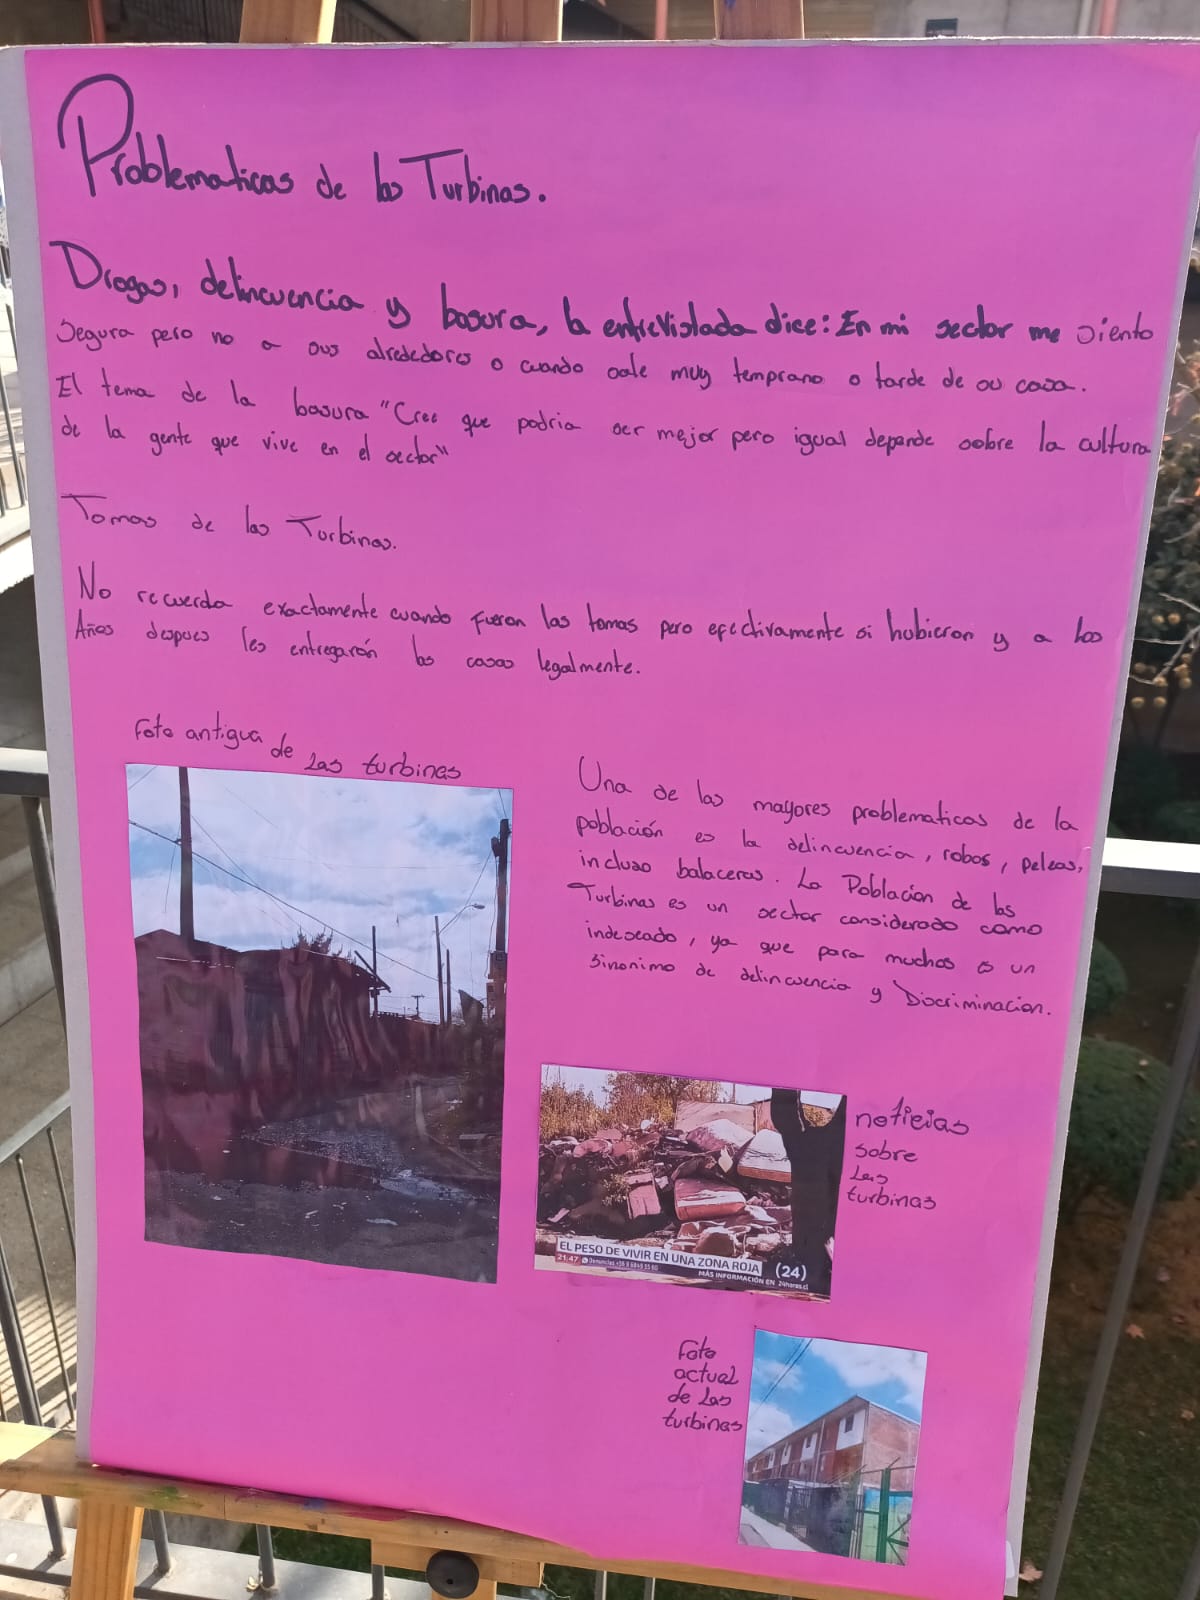 Problematicas de las Turbinas.
Drogas, delincuencia y basura, la entrevistada dice: En mi sector me siento
segura pero no a sus alrededores o cuando sale muy temprano o tarde de su casa.
El tema de la basura "Cree que podria ser mejor pero igual depende sobre la cultura
de la gente que vive en el sector"
Tomas de las Turbinas.
No recuerda exactamente cuando fueron las tomas pero efectivamente si hubieron y a los
Años despues les entregarón las casas legalmente.
Foto antigua de las turbinas
Una de las mayores problematicas de la
población es la delincuencia, robos, peleas,
incluso balaceras. La Población de las
Turbinas es un sector considerado como
indeseado, ya que para muchos es un
sinonimo de delincuencia y Discriminacion.
noticias
sobre
las
turbinas
EL PESO DE VIVIR EN UNA ZONA ROJA
21:47 Denuncias +56 9 6849 55 60
(24)
MÁS INFORMACIÓN EN 24horas.cl
Foto
actual
de las
turbinas